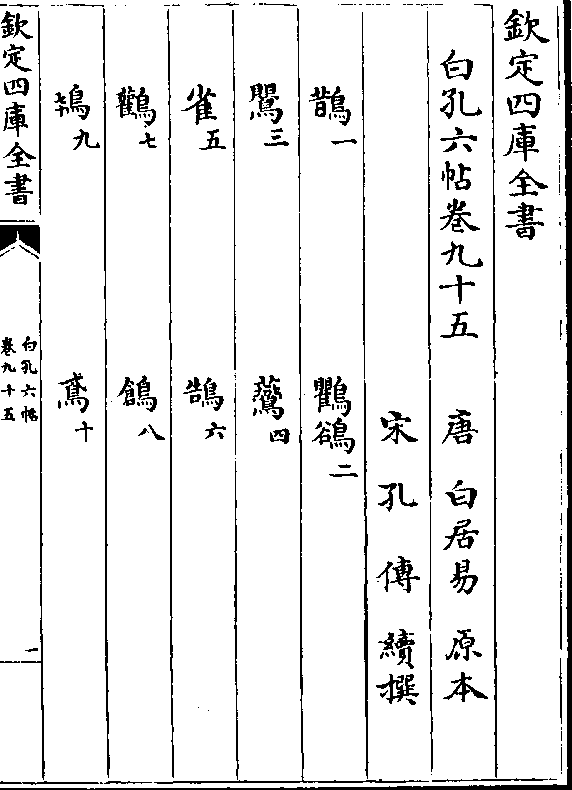 欽定四庫全書
白孔六帖卷九十五 唐 白居易 原本
宋 孔 傳 續撰
鵲一 鸜鵒二
鸎三 鷰四
雀五 鵠六
鸛七 鴿八
鴇九 鳶十
欽定四庫全書
白孔六帖
卷九十五
一